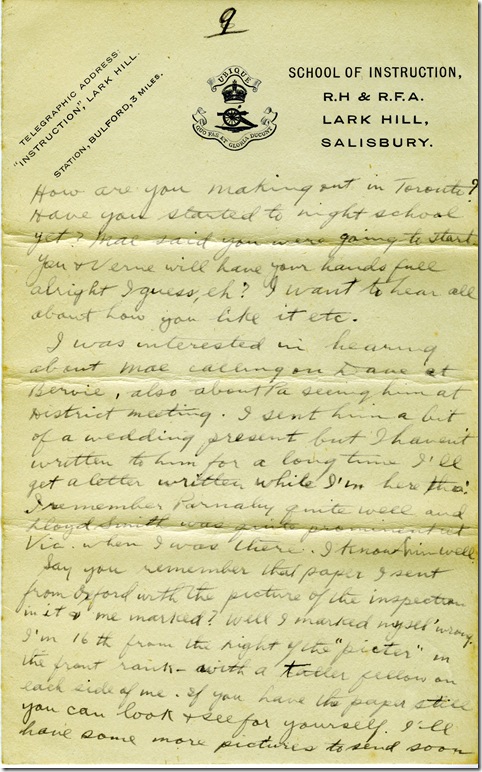 9
TELEGRAPHIC ADDRESS:
"INSTRUCTION," LARK HILL.
STATION, BULFORD, 3 MILES.
UBIQUE
QUO FAS ET GLORIA DUCUNT
SCHOOL OF INSTRUCTION,
R.H & R.F.A.
LARK HILL,
SALISBURY.
How are you making out in Toronto?
Have you started to night school
yet? Mae said you were going to start
You & Verne will have your hands full
alright I guess, eh? I want to hear all
about how you like it etc.
I was interested in hearing
about Mae calling on Dave at
Bervie, also about Pa seeing him at
District meeting. I sent him a bit
of a wedding present but I haven't
written to him for a long time I'll
get a letter written while I'm here tho'.
I remember Parnaby quite well and
Lloyd Smith was quite prominent at
Vic. when I was there. I know him well
Say you remember that paper I sent
from Oxford with the picture of the inspection
in it & me marked? Well I marked myself wrong.
I'm 16th from the right of the "picter" in
the front rank - with a taller fellow on
each side of me. If you have the paper still
you can look & see for yourself. I'll
have some more pictures to send soon